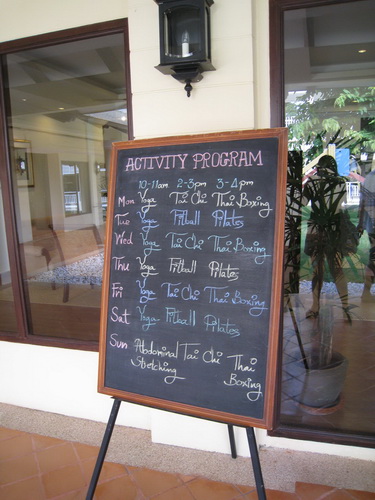 ACTIVITY PROGRAM
10-11am 2-3pm 3-4pm
Mon Yoga Tai Chi Thai Boxing
Tue Yoga Fitball Pilates
Wed Yoga Tai Chi Thai Boxing
Thu Yoga Fitball Pilates
Fri Yoga Tai Chi Thai Boxing
Sat Yoga Fitball Pilates
Sun Abdominal Tai Chi Thai
Stretching Boxing